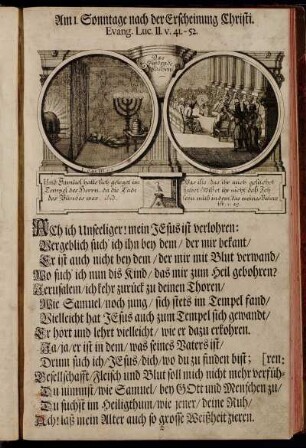 Am 1. Sonntage nach der Erscheinung Christi.
Evang. Luc. II. v. 41-52.
Und Samuel hatte sich geleget im
Tempel des Herrn, da die Lade
Was ists das ihr mich gesuchet
Ach ich Unseliger: mein JEsus ist verlohren:
Vergeblich such' ich ihn bey dem / der mir bekant /
Er ist auch nicht bey dem / der mir mit Blut verwand /
Wo such' ich nun dis Kind / das mir zum Heil gebohren?
Jerusalem / ich kehr zurück zu deinen Thoren /
Wie Samuel noch jung / sich stets im Tempel fand /
Vielleicht hat JEsus auch zum Tempel sich gewandt /
Er hört und lehrt vielleicht / wie er dazu erkohren.
Ja / ja / er ist in dem / was seines Vaters ist /
Drum such ich / JEsus / dich / wo du zu finden bist; [ren:
Gesellschafft / Fleisch und Blut soll mich nicht mehr verfüh-
Du nimmst / wie Samuel / bey GOtt und Menschen zu /
Du suchst im Heiligthum / wie jener / deine Ruh /
Ach! laß mein Alter auch so grosse Weißheit zieren.